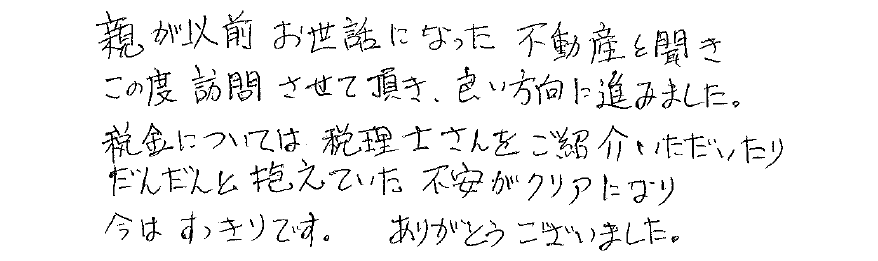 親が以前 お世話になった 不動産と聞き
この度 訪問 させて頂き、良い方向に進みました。
税金については 税理士さんを ご紹介いただいたり
だんだんと 抱えていた 不安がクリアになり
今は すっきりです。 ありがとうございました。